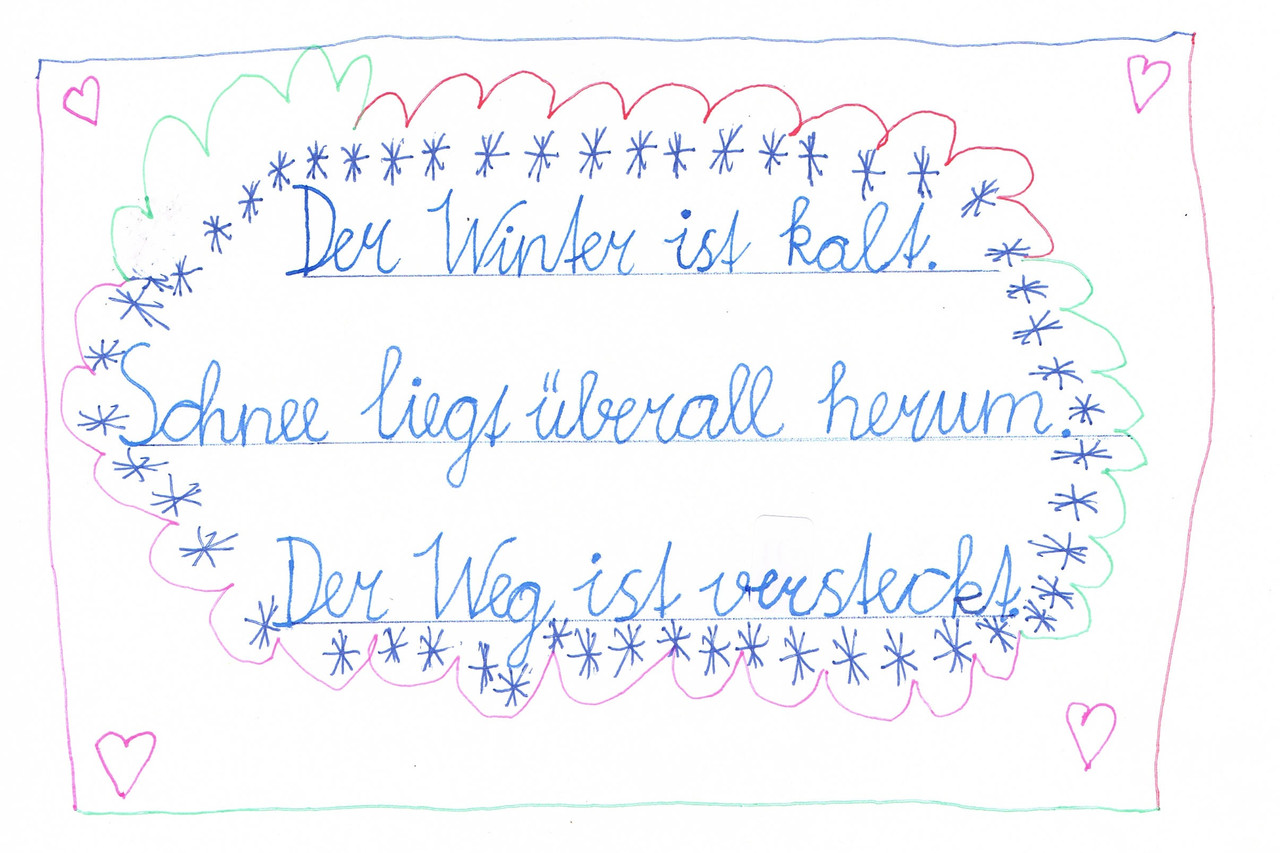 Der Winter ist kalt.
Schnee liegt überall herum.
Der Weg ist versteckt.